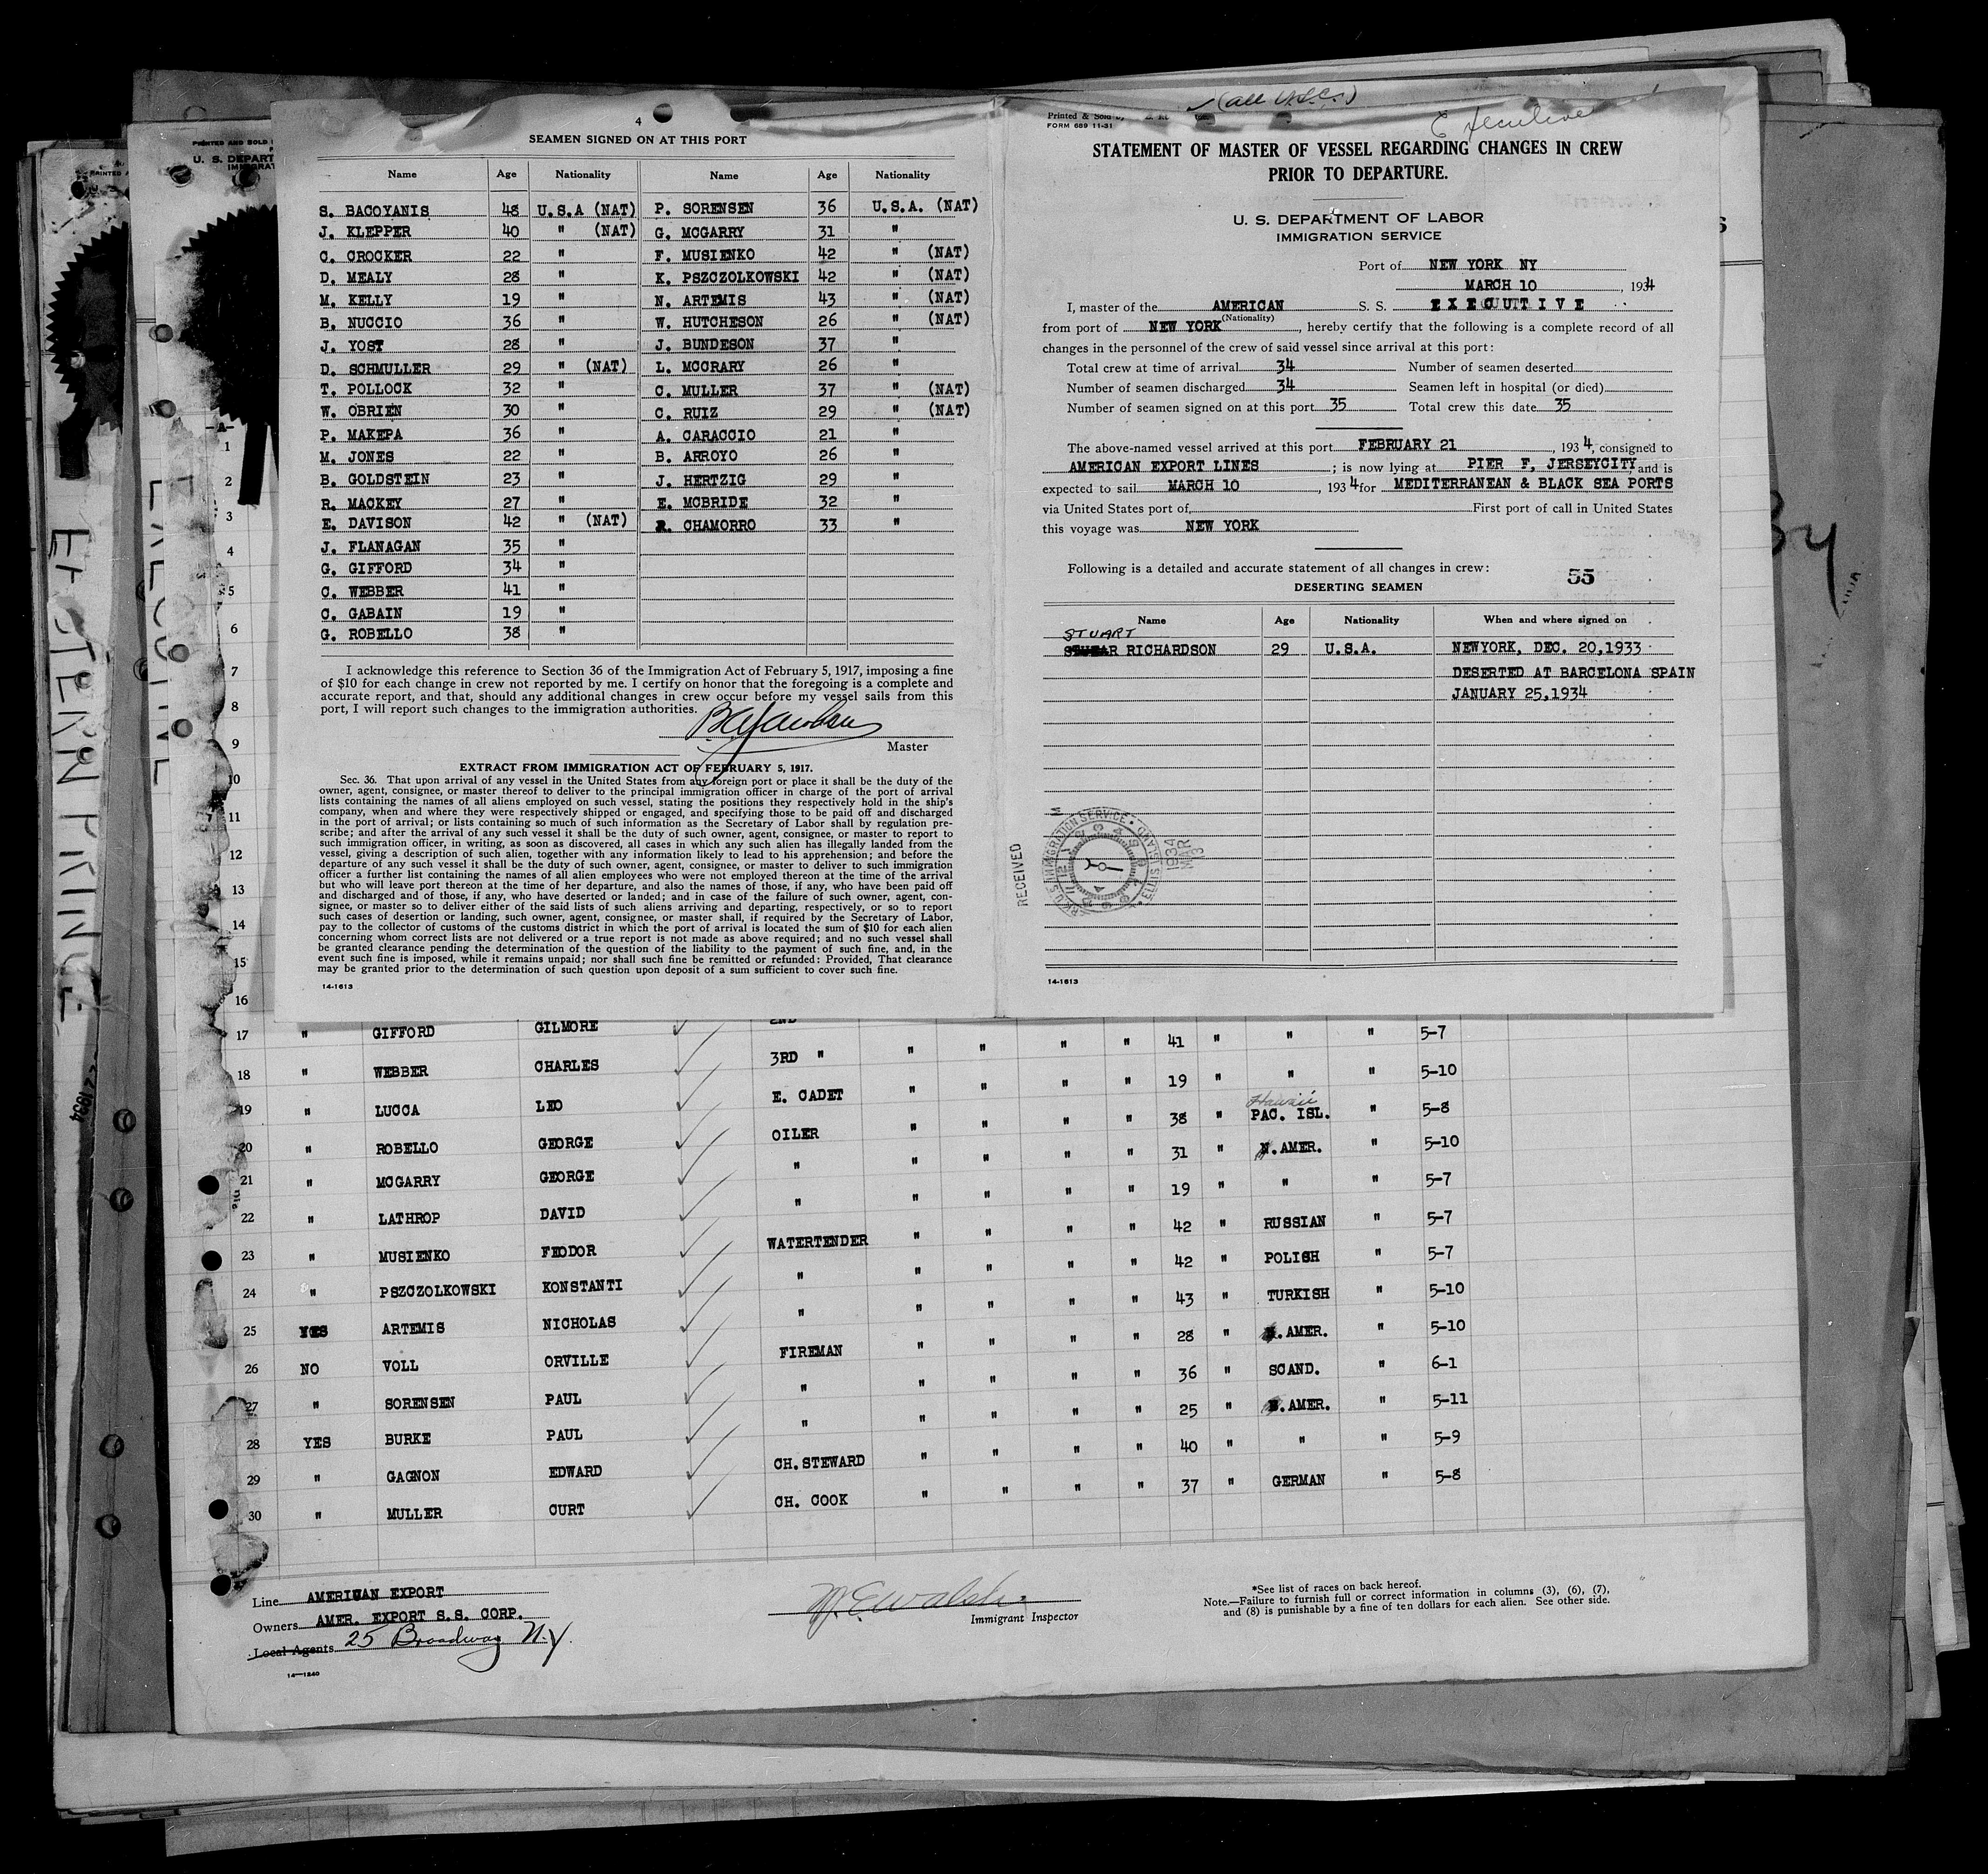 4
SEAMEN SIGNED ON AT THIS PORT
Name Age Nationality Name Age Nationality
S. BACOYANIS 48 U.S.A (NAT) P. SORENSEN 36 U.S.A. (NAT)
J. KLEPPER 40 " (NAT) G. MCGARRY 31 "
C. CROCKER 22 " F. MUSIENKO 42 " (NAT)
D. MEALY 28 " K. PSZCZOLKOWSKI 42 " (NAT)
M. KELLY 19 " N. ARTEMIS 43 " (NAT)
B. NUCCIO 36 " W. HUTCHESON 26 " (NAT)
J. YOST 28 " J. BUNDESON 37 "
D. SCHMULLER 29 " (NAT) L. MCCRARY 26 "
T. POLLOCK 32 " C. MULLER 37 " (NAT)
W. OBRIEN 30 " C. RUIZ 29 " (NAT)
P. MAKEPA 36 " A. CARACCIO 21 "
M. JONES 22 " B. ARROYO 26 "
B. GOLDSTEIN 23 " J. HERTZIG 29 "
R. MACKEY 27 " E. MCBRIDE 32 "
E. DAVISON 42 " (NAT) R. CHAMORRO 33 "
J. FLANAGAN 35 "
G. GIFFORD 34 "
C. WEBBER 41 "
C. GABAIN 19 "
G. ROBELLO 38 "
I acknowledge this reference to Section 36 of the Immigration Act of February 5, 1917, imposing a fine
of $10 for each change in crew not reported by me. I certify on honor that the foregoing is a complete and
accurate report, and that, should any additional changes in crew occur before my vessel sails from this
port, I will report such changes to the immigration authorities.
Master
EXTRACT FROM IMMIGRATION ACT OF FEBRUARY 5, 1917.
Sec. 36. That upon arrival of any vessel in the United States from any foreign port or place it shall be the duty of the
owner, agent, consignee, or master thereof to deliver to the principal immigration officer in charge of the port of arrival
lists containing the names of all aliens employed on such vessel, stating the positions they respectively hold in the ship's
company, when and where they were respectively shipped or engaged, and specifying those to be paid off and discharged
in the port of arrival; or lists containing so much of such information as the Secretary of Labor shall by regulation pre-
scribe; and after the arrival of any such vessel it shall be the duty of such owner, agent, consignee, or master to report to
such immigration officer, in writing, as soon as discovered, all cases in which any such alien has illegally landed from the
vessel, giving a description of such alien, together with any information likely to lead to his apprehension; and before the
departure of any such vessel it shall be the duty of such owner, agent, consignee, or master to deliver to such immigration
officer a further list containing the names of all alien employees who were not employed thereon at the time of the arrival
but who will leave port thereon at the time of her departure, and also the names of those, if any, who have been paid off
and discharged and of those, if any, who have deserted or landed; and in case of the failure of such owner, agent, con-
signee, or master so to deliver either of the said lists of such aliens arriving and departing, respectively, or so to report
such cases of desertion or landing, such owner, agent, consignee, or master shall, if required by the Secretary of Labor,
pay to the collector of customs of the customs district in which the port of arrival is located the sum of $10 for each alien
concerning whom correct lists are not delivered or a true report is not made as above required; and no such vessel shall
be granted clearance pending the determination of the question of the liability to the payment of such fine, and, in the
event such fine is imposed, while it remains unpaid; nor shall such fine be remitted or refunded: Provided, That clearance
may be granted prior to the determination of such question upon deposit of a sum sufficient to cover such fine.
14-1613
(all U.S.C.)
Executive
Printed & Sold by
FORM 689 11-31
STATEMENT OF MASTER OF VESSEL REGARDING CHANGES IN CREW
PRIOR TO DEPARTURE.
U. S. DEPARTMENT OF LABOR
IMMIGRATION SERVICE
Port of NEW YORK NY
MARCH 10, 1934
I, master of the AMERICAN S. S. EXECUTIVE
(Nationality)
from port of NEW YORK, hereby certify that the following is a complete record of all
changes in the personnel of the crew of said vessel since arrival at this port:
Total crew at time of arrival 34 Number of seamen deserted
Number of seamen discharged 34 Seamen left in hospital (or died)
Number of seamen signed on at this port 35 Total crew this date 35
The above-named vessel arrived at this port FEBRUARY 21, 1934, consigned to
AMERICAN EXPORT LINES; is now lying at PIER F, JERSEYCITY and is
expected to sail MARCH 10, 1934 for MEDITERRANEAN & BLACK SEA PORTS
via United States port of, First port of call in United States
this voyage was NEW YORK
Following is a detailed and accurate statement of all changes in crew:
55
DESERTING SEAMEN
Name Age Nationality When and where signed on
STUART
RICHARDSON 29 U.S.A. NEWYORK, DEC. 20,1933
DESERTED AT BARCELONA SPAIN
JANUARY 25,1934
RECEIVED
U.S. IMMIGRATION SERVICE
ELLIS ISLAND
1934 MAR 13
14-1613
PRINTED AND SOLD
U. S. DEPART
IMMIGRAT
EXECUTIVE
EASTERN PRINCE
34
1
2
3
4
5
6
7
8
9
10
11
12
13
14
15
16
17 " GIFFORD GILMORE 2ND 41 " " " 5-7
18 " WEBBER CHARLES 3RD " " " " " 19 " " " 5-10
19 " LUCCA LEO E. CADET " " " " 38 " Hawaii PAC. ISL. " 5-8
20 " ROBELLO GEORGE OILER " " " " 31 " N. AMER. " 5-10
21 " MCGARRY GEORGE " " " " " 19 " " " 5-7
22 " LATHROP DAVID " " " " " 42 " RUSSIAN " 5-7
23 " MUSIENKO FEODOR WATERTENDER " " " " 42 " POLISH " 5-7
24 " PSZCZOLKOWSKI KONSTANTI " " " " " 43 " TURKISH " 5-10
25 YES ARTEMIS NICHOLAS " " " " " 28 " N. AMER. " 5-10
26 NO VOLL ORVILLE FIREMAN " " " " 36 " SCAND. " 6-1
27 " SORENSEN PAUL " " " " " 25 " . AMER. " 5-11
28 YES BURKE PAUL " " " " " 40 " " " 5-9
29 " GAGNON EDWARD CH.STEWARD " " " " 37 " GERMAN " 5-8
30 " MULLER CURT CH. COOK " " " "
Line AMERICAN EXPORT
Owners AMER. EXPORT S.S. CORP.
Local Agents 25 Broadway N.Y.
14-1240
W.E. Walsh
Immigrant Inspector
*See list of races on back hereof.
Note.—Failure to furnish full or correct information in columns (3), (6), (7),
and (8) is punishable by a fine of ten dollars for each alien. See other side.